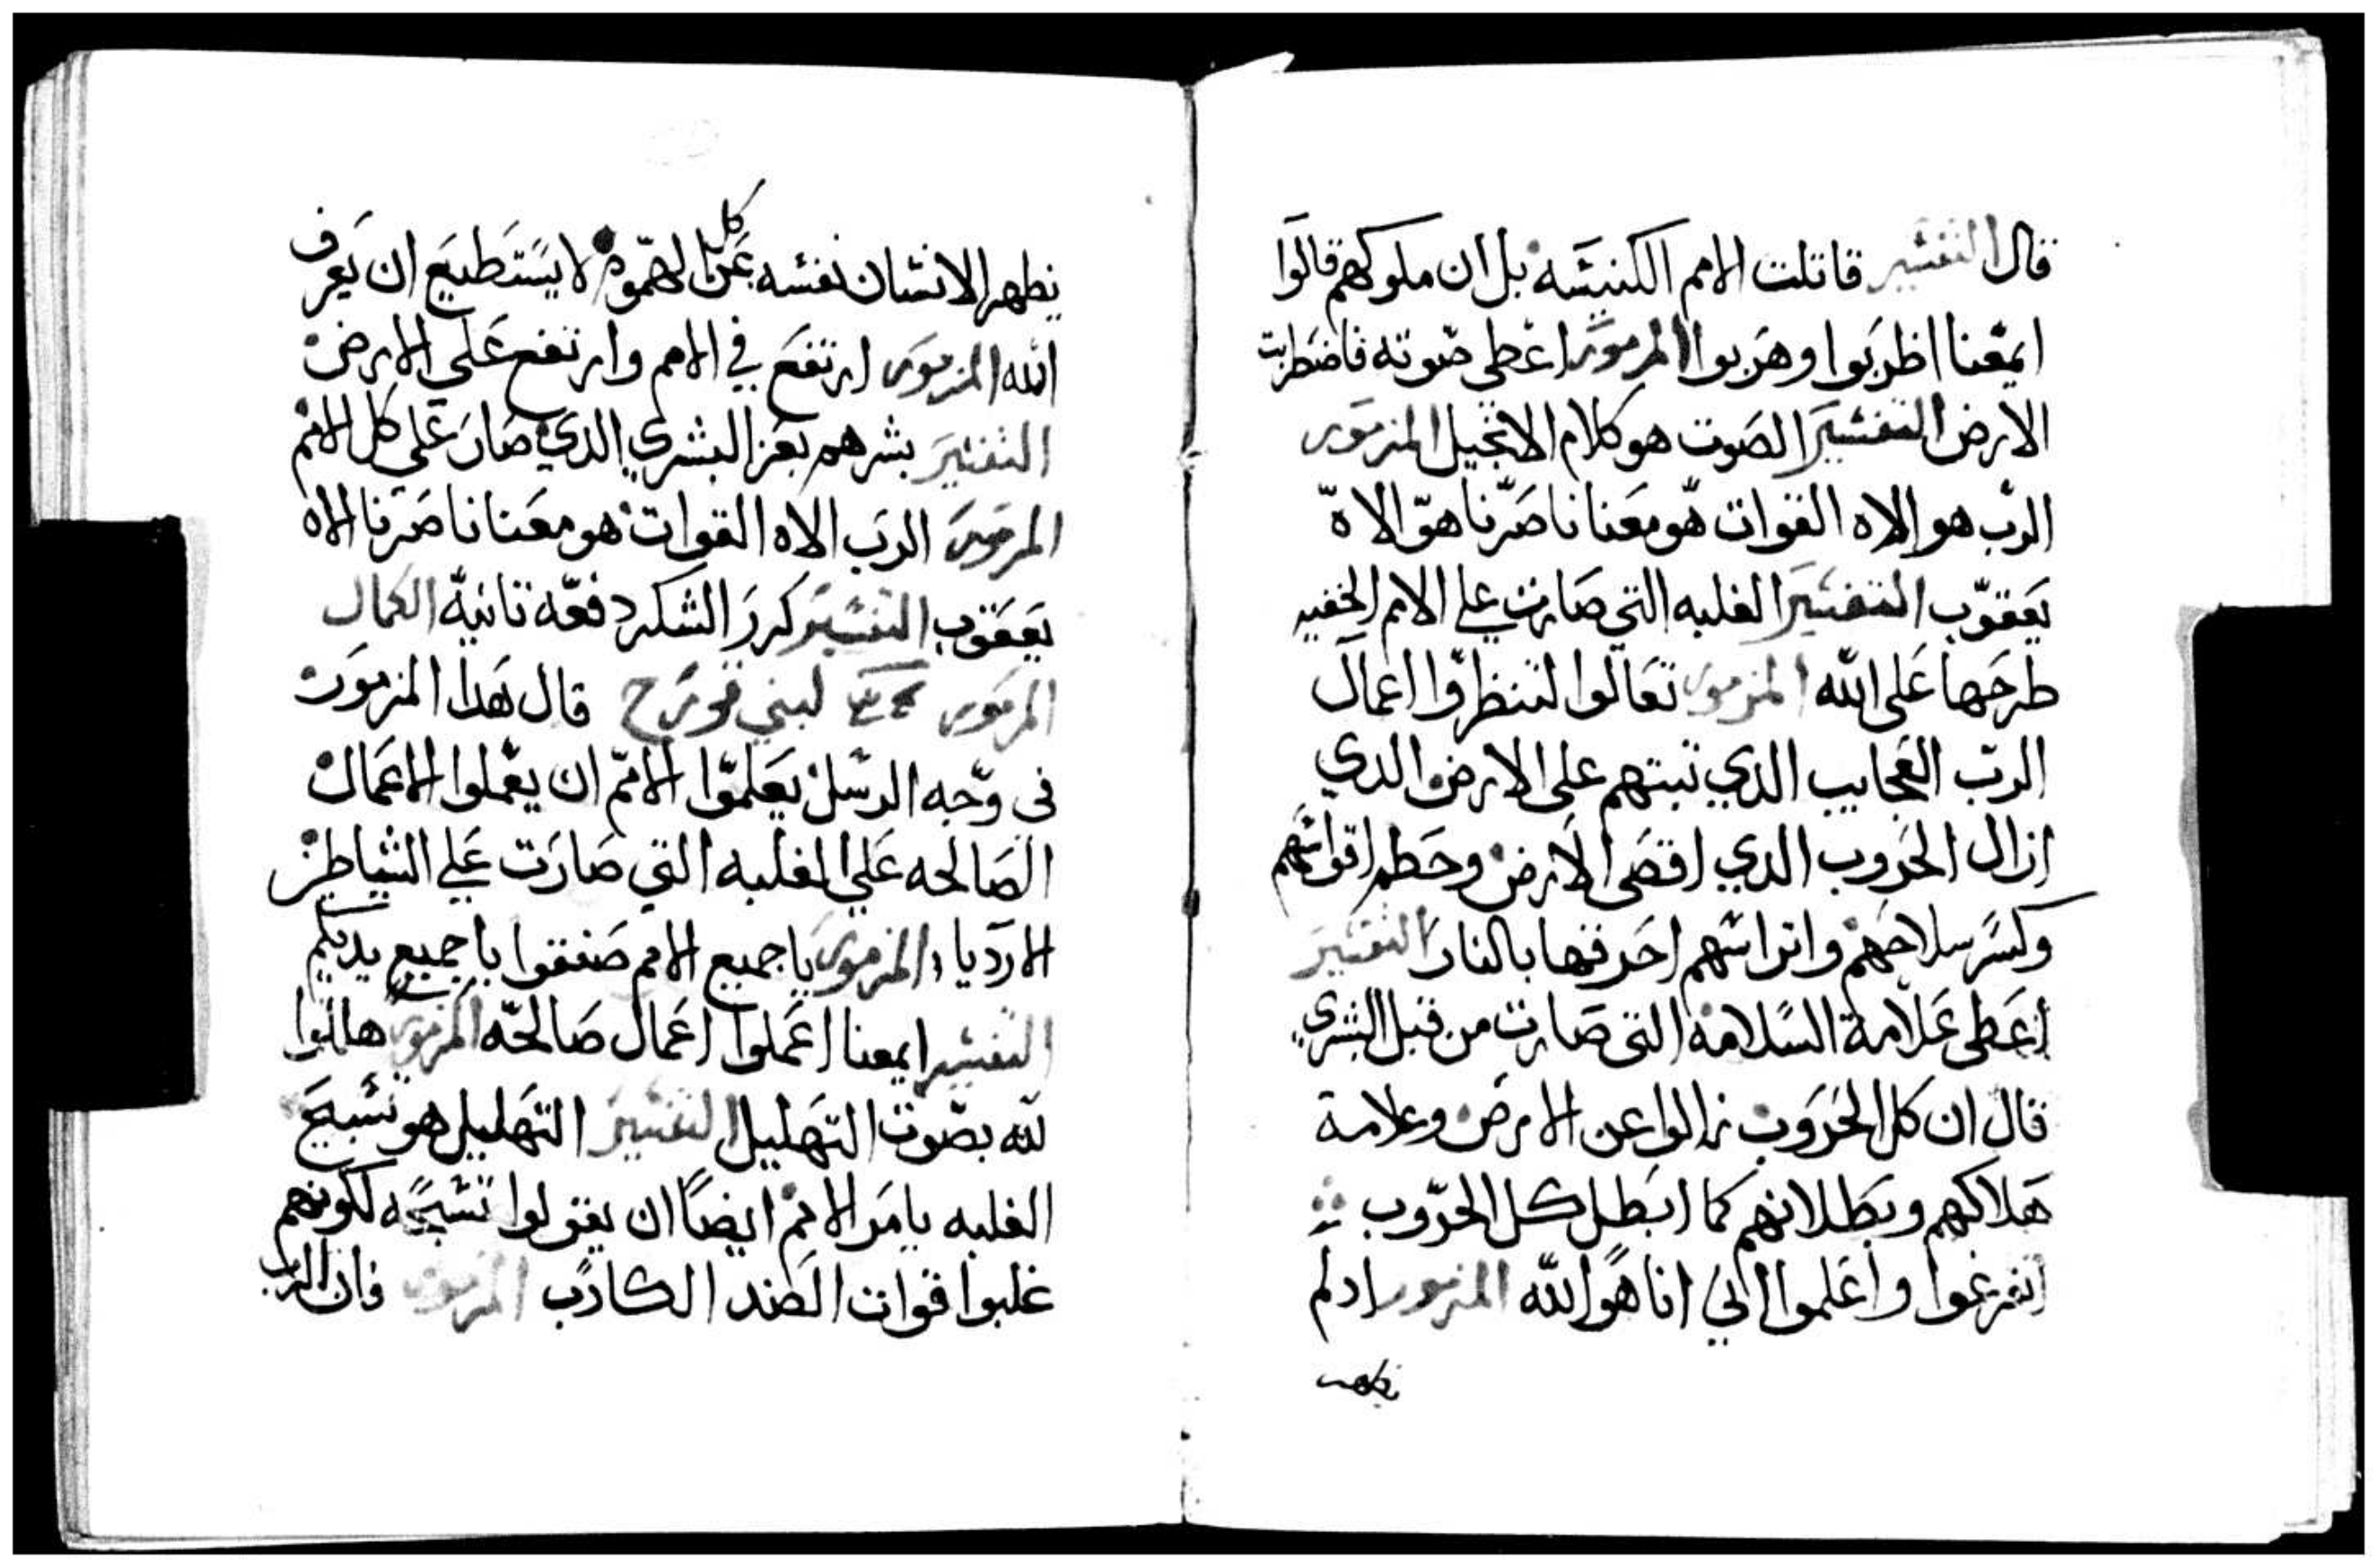 قال التفسير قاتلت الامم الكنيسه بل ان ملوكهم قالوا
ايمعنا اظربوا وهربوا المزمور اعطي صوته فاضطربت
الارض التفسير الصوت هو كلام الانجيل المزمور
الرب هو الاه القوات هو معنا ناصرنا هو الاه
يعقوب التفسير الغلبه التي صارت علي الامم الخفيه
طرحها على الله المزمور تعالوا لتنظروا اعمال
الرب العجايب الذي تبتهم على الارض الدي
ازال الحروب الدي اقصى الارض وحطم اقواسهم
وكسر سلاحهم واتراسهم احرقها بالنار التفسير
اعطى علامة السلامه التى صارت من قبل البشري
قال ان كل الحروب زالوا عن الارض وعلامة
هلاكهم وبطلانهم كما ابطل كل الحروب
اتفرغوا واعلموا اني انا هو الله المزمور ادلم
يطهر
يطهر الانسان نفسه عن كل الهموم لا يستطيع ان يعرف
الله المزمور ارتفع في الامم وارتفع علي الارض
التفسير بشرهم بعز البشري الدي صار علي كل الامم
المزمور الرب الاه القوات هو معنا ناصرنا الاه
يعقوب التفسير كرر الشكر دفعه تانيه الكمال
المزمور لبني قورح قال هدا المزمور
في وجه الرسل يعلموا الامم ان يعملوا الاعمال
الصالحه علي الغلبه التي صارت علي الشياطين
الارديا المزمور يا جميع الامم صفقوا يا جميع يديكم
التفسير ايمعنا اعملوا اعمال صالحه المزمور هللوا
لله بصوت التهليل التفسير التهليل هو تسبيح
الغلبه يامر الامم ايضاً ان يقولوا تسبحه لكونهم
غلبوا قوات الضد الكادب المزمور فان الرب